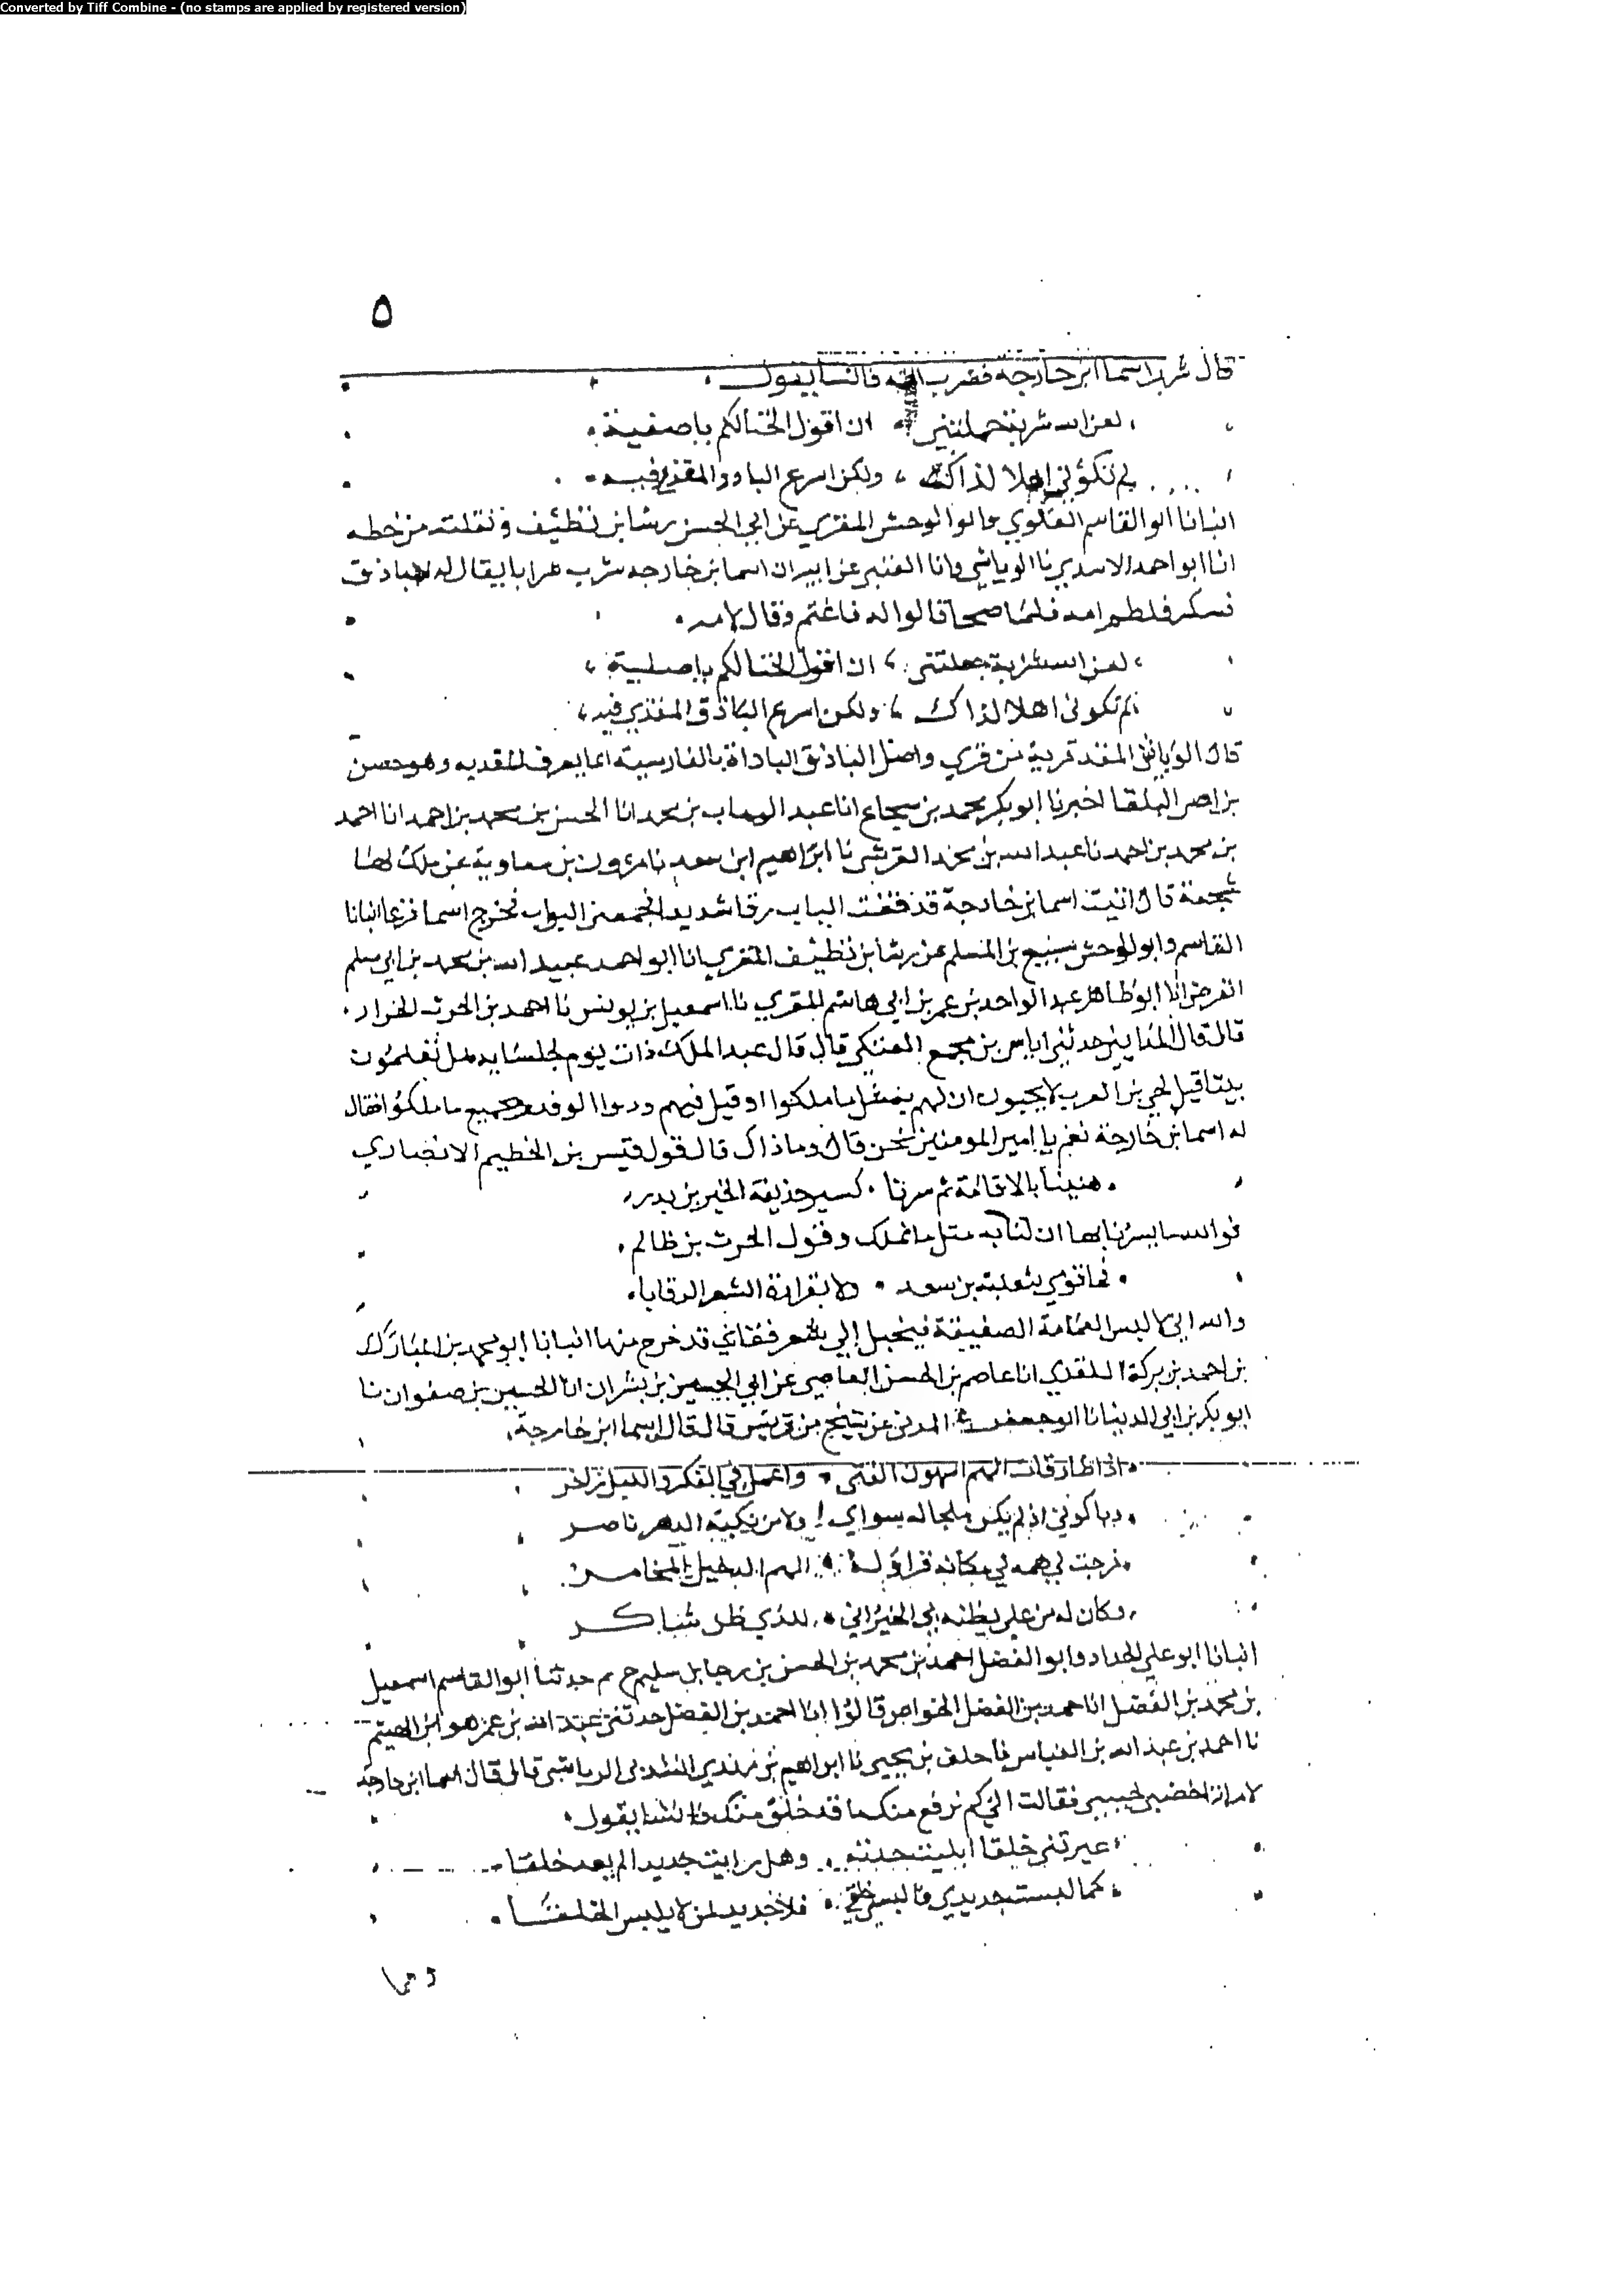 Converted by Tiff Combine - (no stamps are applied by registered version)
٥
قال شرب اسما ابن خارجة فضرب امه فانشا يقول
لعن الله شربة حملتني ان اقول الخنا لكم ياصفية
لم تكوني اهلا لذاك ولكن اسرع الباذ المقذي فيه
انبانا ابو القاسم العلوي وابو الوحش المقري عن ابي الحسن رشا بن نظيف ونقلته من خطه
انا ابو احمد نا الرياشي نا العتبي عن ابيه ان اسما بن خارجه شرب شرابا يقال له الباذق
فسكر فلطم امه فلما صحا قالوا له فاغتم وقال لامه
لعن الله شربة جعلتني ان اقول الخنا لكم ياصفية
لم تكوني اهلا لذاك ولكن اسرع الباذق المقذي فيه
قال الرياشي المقد قرية من قري واصل الباذق الباداة بالفارسية انما يعرف المقديه وهو حصن
البلقا اخبرنا ابو بكر محمد بن شجاع انا عبد الوهاب بن محمد انا الحسن بن محمد بن احمد انا احمد
بن محمد بن احمد نا عبد الله بن محمد القرشي نا ابراهيم ابن سعيد نا مروان بن معاوية عن ملك بن
قال اتيت اسما بن خارجة فدققت الباب دقا شديدا البواب فخرج اسما فزعا انبانا
القاسم وابو الوحش سبيع بن المسلم عن رشا بن نظيف المقري انا ابو احمد عبيد الله بن محمد بن ابي مسلم
الفرضي انا ابو طاهر عبد الواحد بن عمر بن ابي هاشم المقري نا اسمعيل بن يونس نا احمد بن الحرث الخراز
قال قال المدايني حدثني اياس بن مجمع قال قال عبد الملك ذات يوم لجلسايه هل تعلمون
بيتا قيل لحي من العرب لا يحبون ان لهم به مثل ما ملكوا او قيل فيهم ودوا لو فدوه بجميع ما ملكوا فقال
له اسما بن خارجة نعم يا امير المومنين نحن قال وما ذاك قال قول قيس بن الخطيم الانصاري
هنينا بالاقامة ثم سرنا كسير حذيفة الخير بن بدر
فوالله ما يسرنا بها ان لنا به مثل ما نملك وقول الحرث بن ظالم
فما قومي بثعلبة بن سعد ولا بفزارة الشعر الرقابا
والله اني لالبس العمامة الصفيقة فيخيل الي شعر قفاي قد خرج منها انبانا ابو محمد بن المبارك
بن احمد بن بركة انا عاصم بن الحسن العاصمي عن ابي الحسين بن بشران انا الحسين بن صفوان نا
ابو بكر بن ابي الدنيا نا ابو جعفر المدني عن شيخ من قريش قال قال اسما ابن خارجة
اذا طارقات الهم الفتى واعمل في الفكر والليل زاخر
وباكرني اذ لم يكن ملجا له سواي ولا من نكبة الدهر ناصر
فرجت لي همه في مكانه الهم الدخيل المخامر
وكان له من علي بظنه بي الخير اني للذي ظن شاكر
انبانا ابو علي الحداد وابو الفضل احمد بن محمد بن الحسن بن سليم ح ثم حدثنا ابو القاسم اسمعيل
بن محمد بن الفضل انا احمد بن الفضل الخواص قالوا انا احمد بن الفضل حدثني عبد الله بن عمر هو ابن الهيثم
نا احمد بن عبد الله بن العباس نا خلف بن يحيى نا ابراهيم بن الرياشي قال قال اسما ابن خارجة
لامراته اخضبي لحيتي فقالت الي كم نرقع منك ما قد خلق منك فانشا يقول
عيرتني خلقا ابليت جدته وهل رايت جديدا لم يعد خلقا
كما لبست جديدي فالبسي خلقي فلا جديد لمن لا يلبس الخلقا